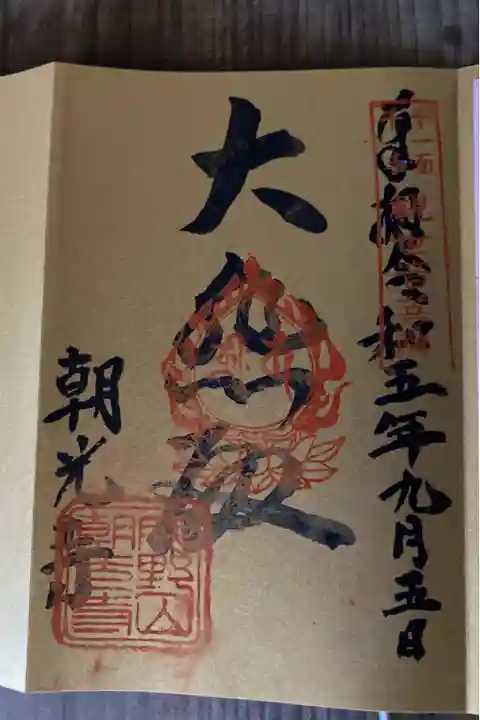 奉拝令和五年九月五日
大悲殿
朝光寺
鹿野山
朝光寺